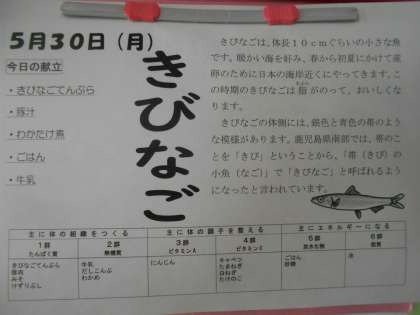 5月30日(月)
今日の献立
・きびなごてんぷら
・豚汁
・わかたけ煮
・ごはん
・牛乳
きびなご
きびなごは、体長10cmぐらいの小さな魚
です。暖かい海を好み、春から初夏にかけて産
卵のために日本の海岸近くにやってきます。こ
の時期のきびなごは脂がのって、おいしくなり
ます。
きびなごの体側には、銀色と青色の帯のよう
な模様があります。鹿児島県南部では、帯のこ
とを「きび」ということから、「帯(きび)の
小魚(なご)」で「きびなご」と呼ばれるように
なったと言われています。
主に体の組織をつくる
主に体の調子を整える
主にエネルギーになる
1群
たんぱく質
2群
無機質
3群
ビタミンA
4群
ビタミンC
5群
炭水化物
6群
脂質
きびなごてんぷら
豚肉
みそ
けずりぶし
牛乳
だしこんぶ
わかめ
にんじん
キャベツ
たまねぎ
白ねぎ
たけのこ
ごはん
砂糖
油